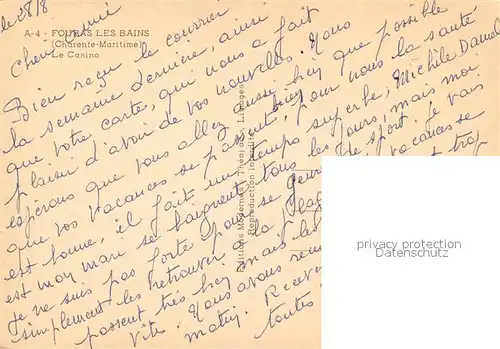 le 28/8
A-4 - FOURAS LES BAINS
(Charente-Maritime)
Le Casino
Chère amie
Bien reçu le courrier
la semaine dernière, ainsi
que votre carte, qui nous a fait
plaisir d'avoir de vos nouvelles. Nous
espérons que vous allez aussi bien que possible
que vos vacances se passent bien, pour nous la santé
est bonne, il fait un temps superbe, Michèle Daniel
et mon mari se baignent tous les jours, mais moi
je ne suis pas forte pour ce genre de sport. Je vais
simplement les retrouver à la Plage
vacances se
passent très bien mais les
trop
vite. Nous avons reçu
matin. Recevez
toutes
Editions Modernes "Théojac", Limoges
Reproduction interdite
privacy protection
www.ak-ansichtskarten.de